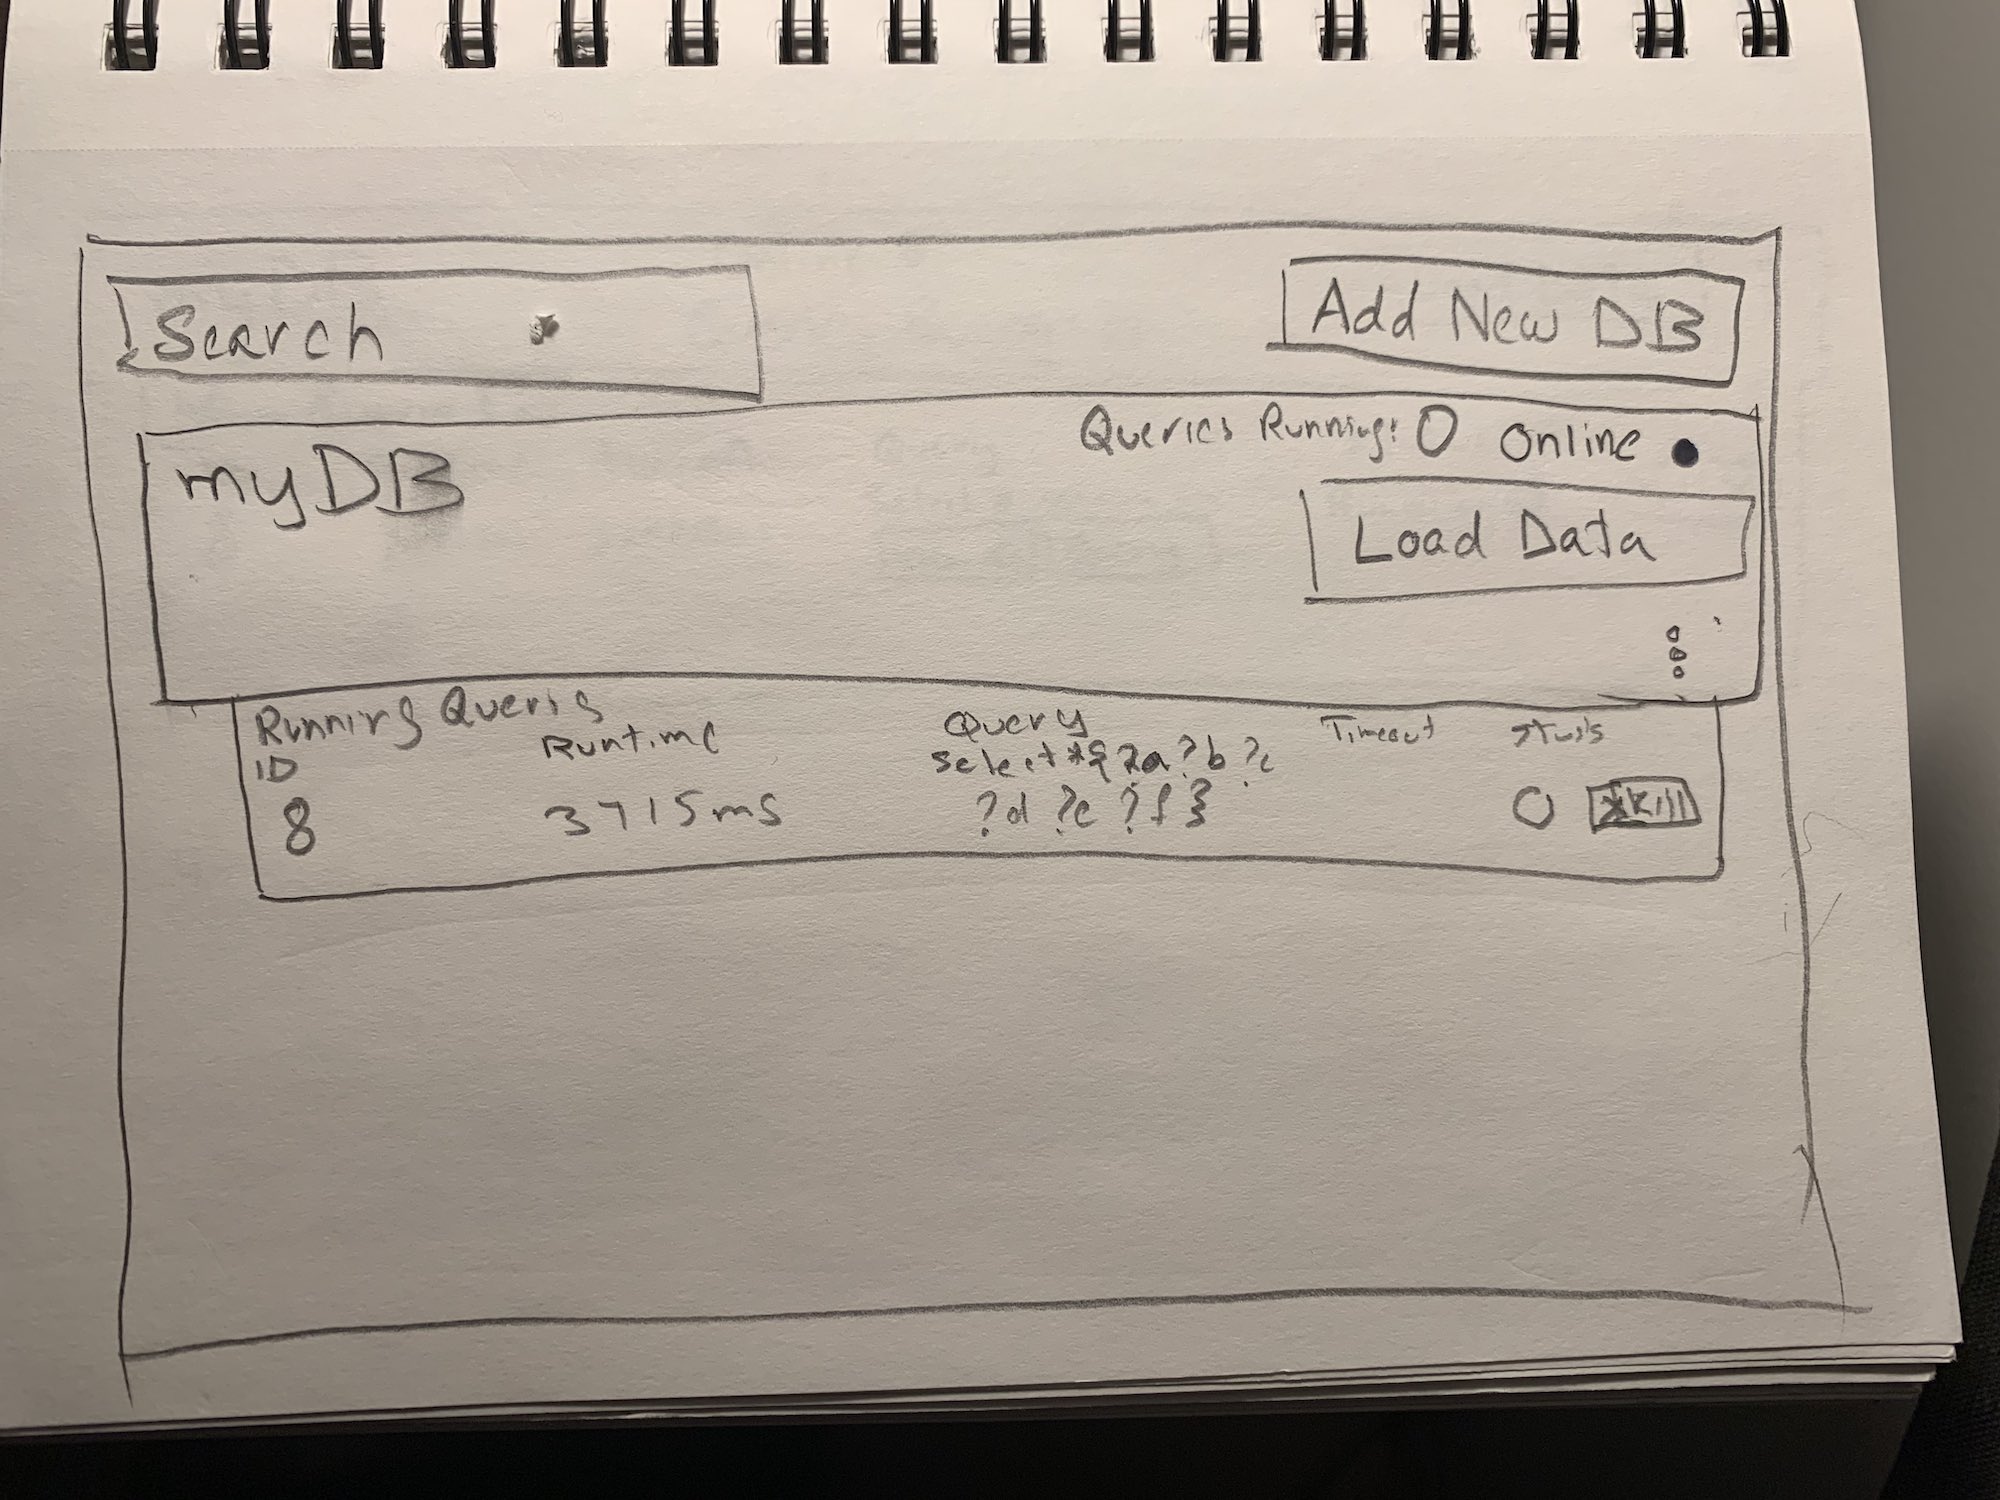 Search
Add New DB
Queries Running: 0 Online
myDB
Load Data
Running Queris
ID Runtime Query Timeout Status
select *{ ?a ?b ?c
8 3715ms ?d ?e ?f } Kill